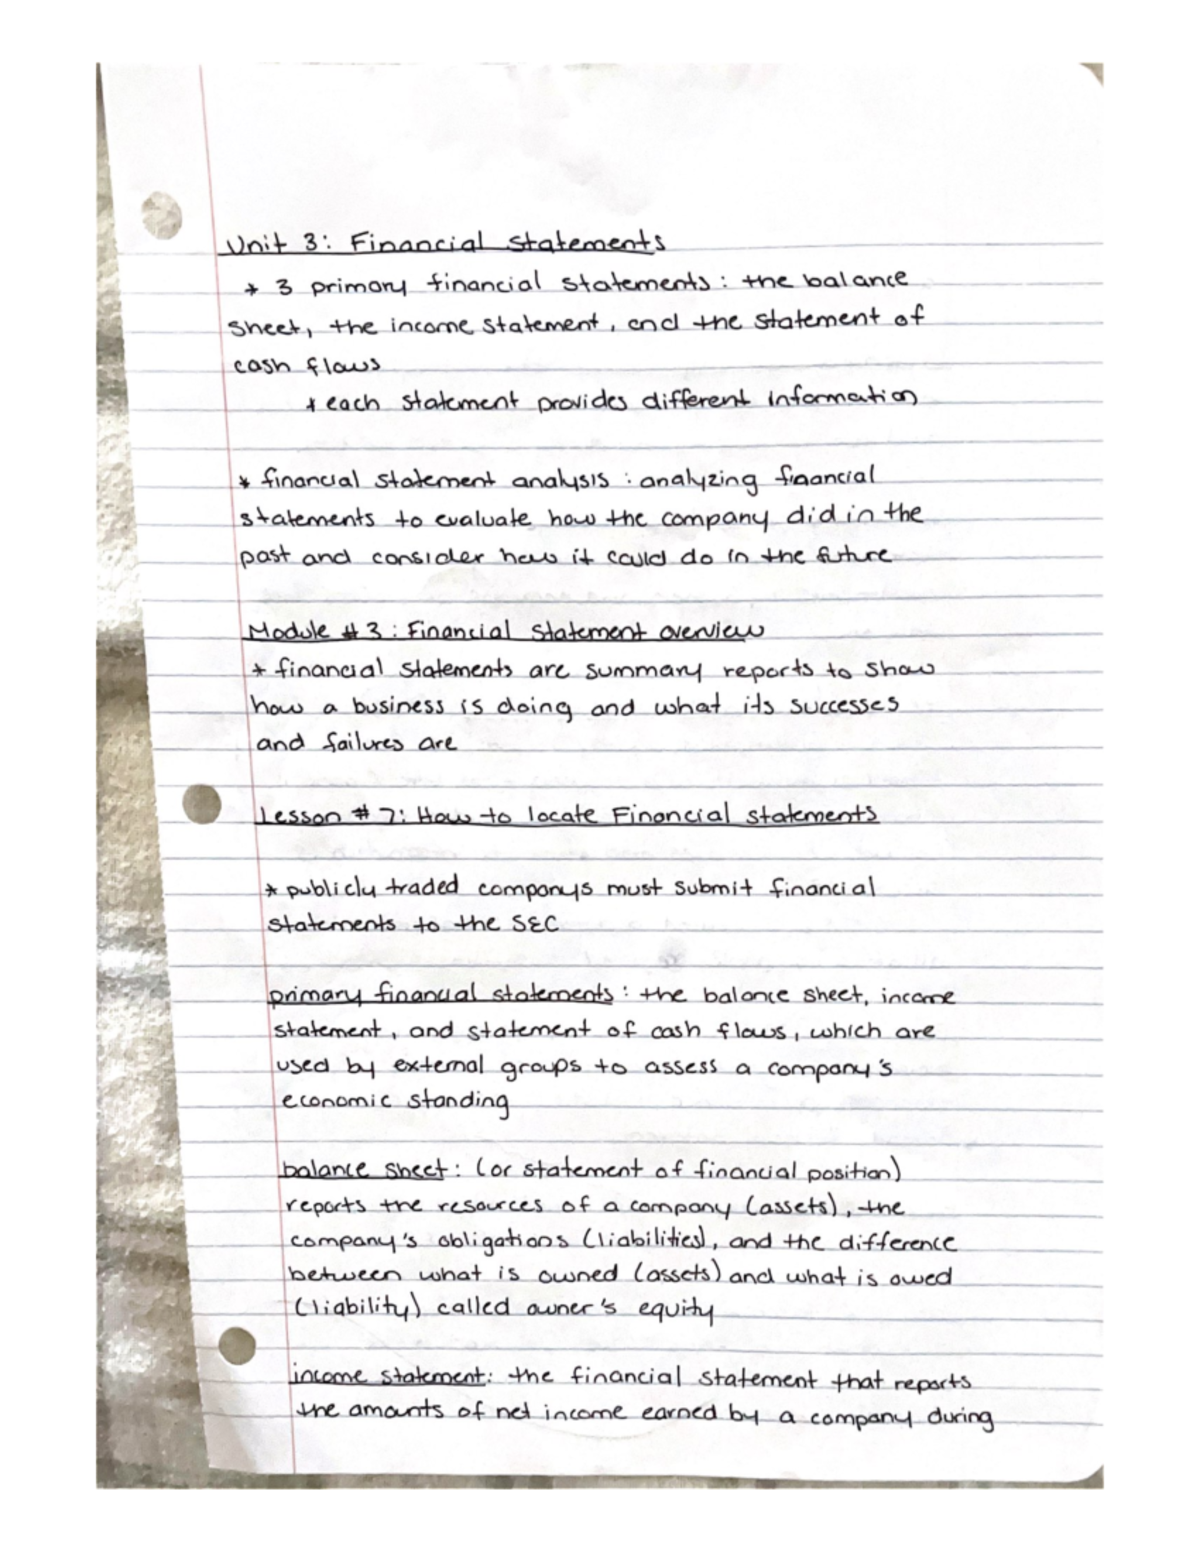 Unit 3: Financial Statements
* 3 primary financial statements: the balance
sheet, the income statement, and the statement of
cash flows
* each statement provides different information
* financial statement analysis: analyzing financial
statements to evaluate how the company did in the
past and consider how it could do in the future
Module #3: Financial statement overview
* financial statements are summary reports to show
how a business is doing and what its successes
and failures are
Lesson #7: How to locate Financial statements
* publicly traded companys must submit financial
statements to the SEC
primary financial statements: the balance sheet, income
statement, and statement of cash flows, which are
used by external groups to assess a company's
economic standing
balance sheet: (or statement of financial position)
reports the resources of a company (assets), the
company's obligations (liabilities), and the difference
between what is owned (assets) and what is owed
(liability) called owner's equity
income statement: the financial statement that reports
the amounts of net income earned by a company during